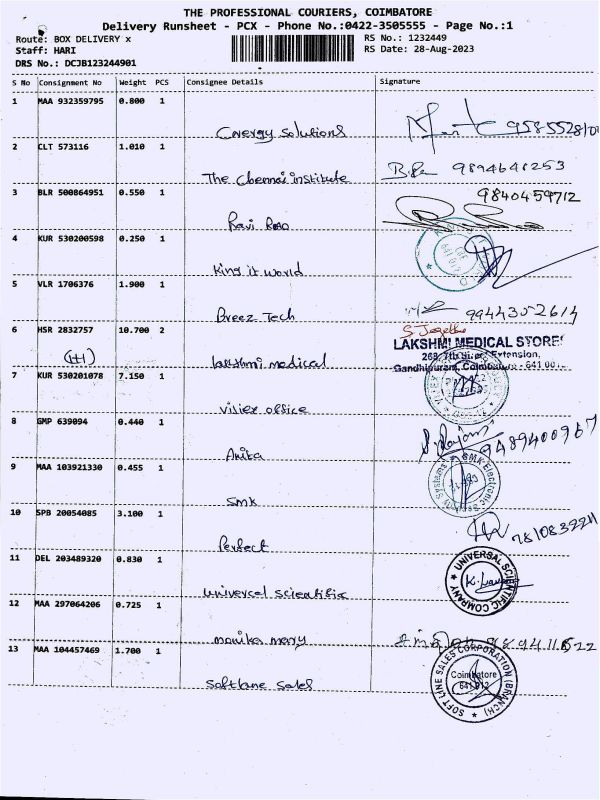 THE PROFESSIONAL COURIERS, COIMBATORE
Delivery Runsheet - PCX - Phone No.:0422-3505555 - Page No.:1
Route: BOX DELIVERY x RS No.: 1232449
Staff: HARI RS Date: 28-Aug-2023
DRS No.: DCJB123244901
S No Consignment No Weight PCS Consignee Details Signature
1 MAA 932359795 0.800 1
Cnergy Solutions
2 CLT 573116 1.010 1
The Chennai institute 9894646253
3 BLR 500864951 0.550 1 9840459712
Ravi Roo
4 KUR 530200598 0.250 1
King it world
5 VLR 1706376 1.900 1
Breez Tech 99443052614
6 HSR 2832757 10.700 2
LAKSHMI MEDICAL STORES
Extension,
Gandhipuram, Coimbatore - 641 00
lakshmi medical
7 KUR 530201078 7.150 1
visiex office
8 GMP 639094 0.440 1
Anika 9489400967
9 MAA 103921330 0.455 1
SMK Electronic
Smk
10 SPB 20054085 3.100 1
Perfect
11 DEL 203489320 0.830 1
UNIVERSAL SCIENTIFIC COMPANY
universal scientific
12 MAA 297064206 0.725 1
monika merry
13 MAA 104457469 1.700 1
SOFT LINE SALES CORPORATION (BRANCH)
Coimbatore
641 012
Softlane Sales